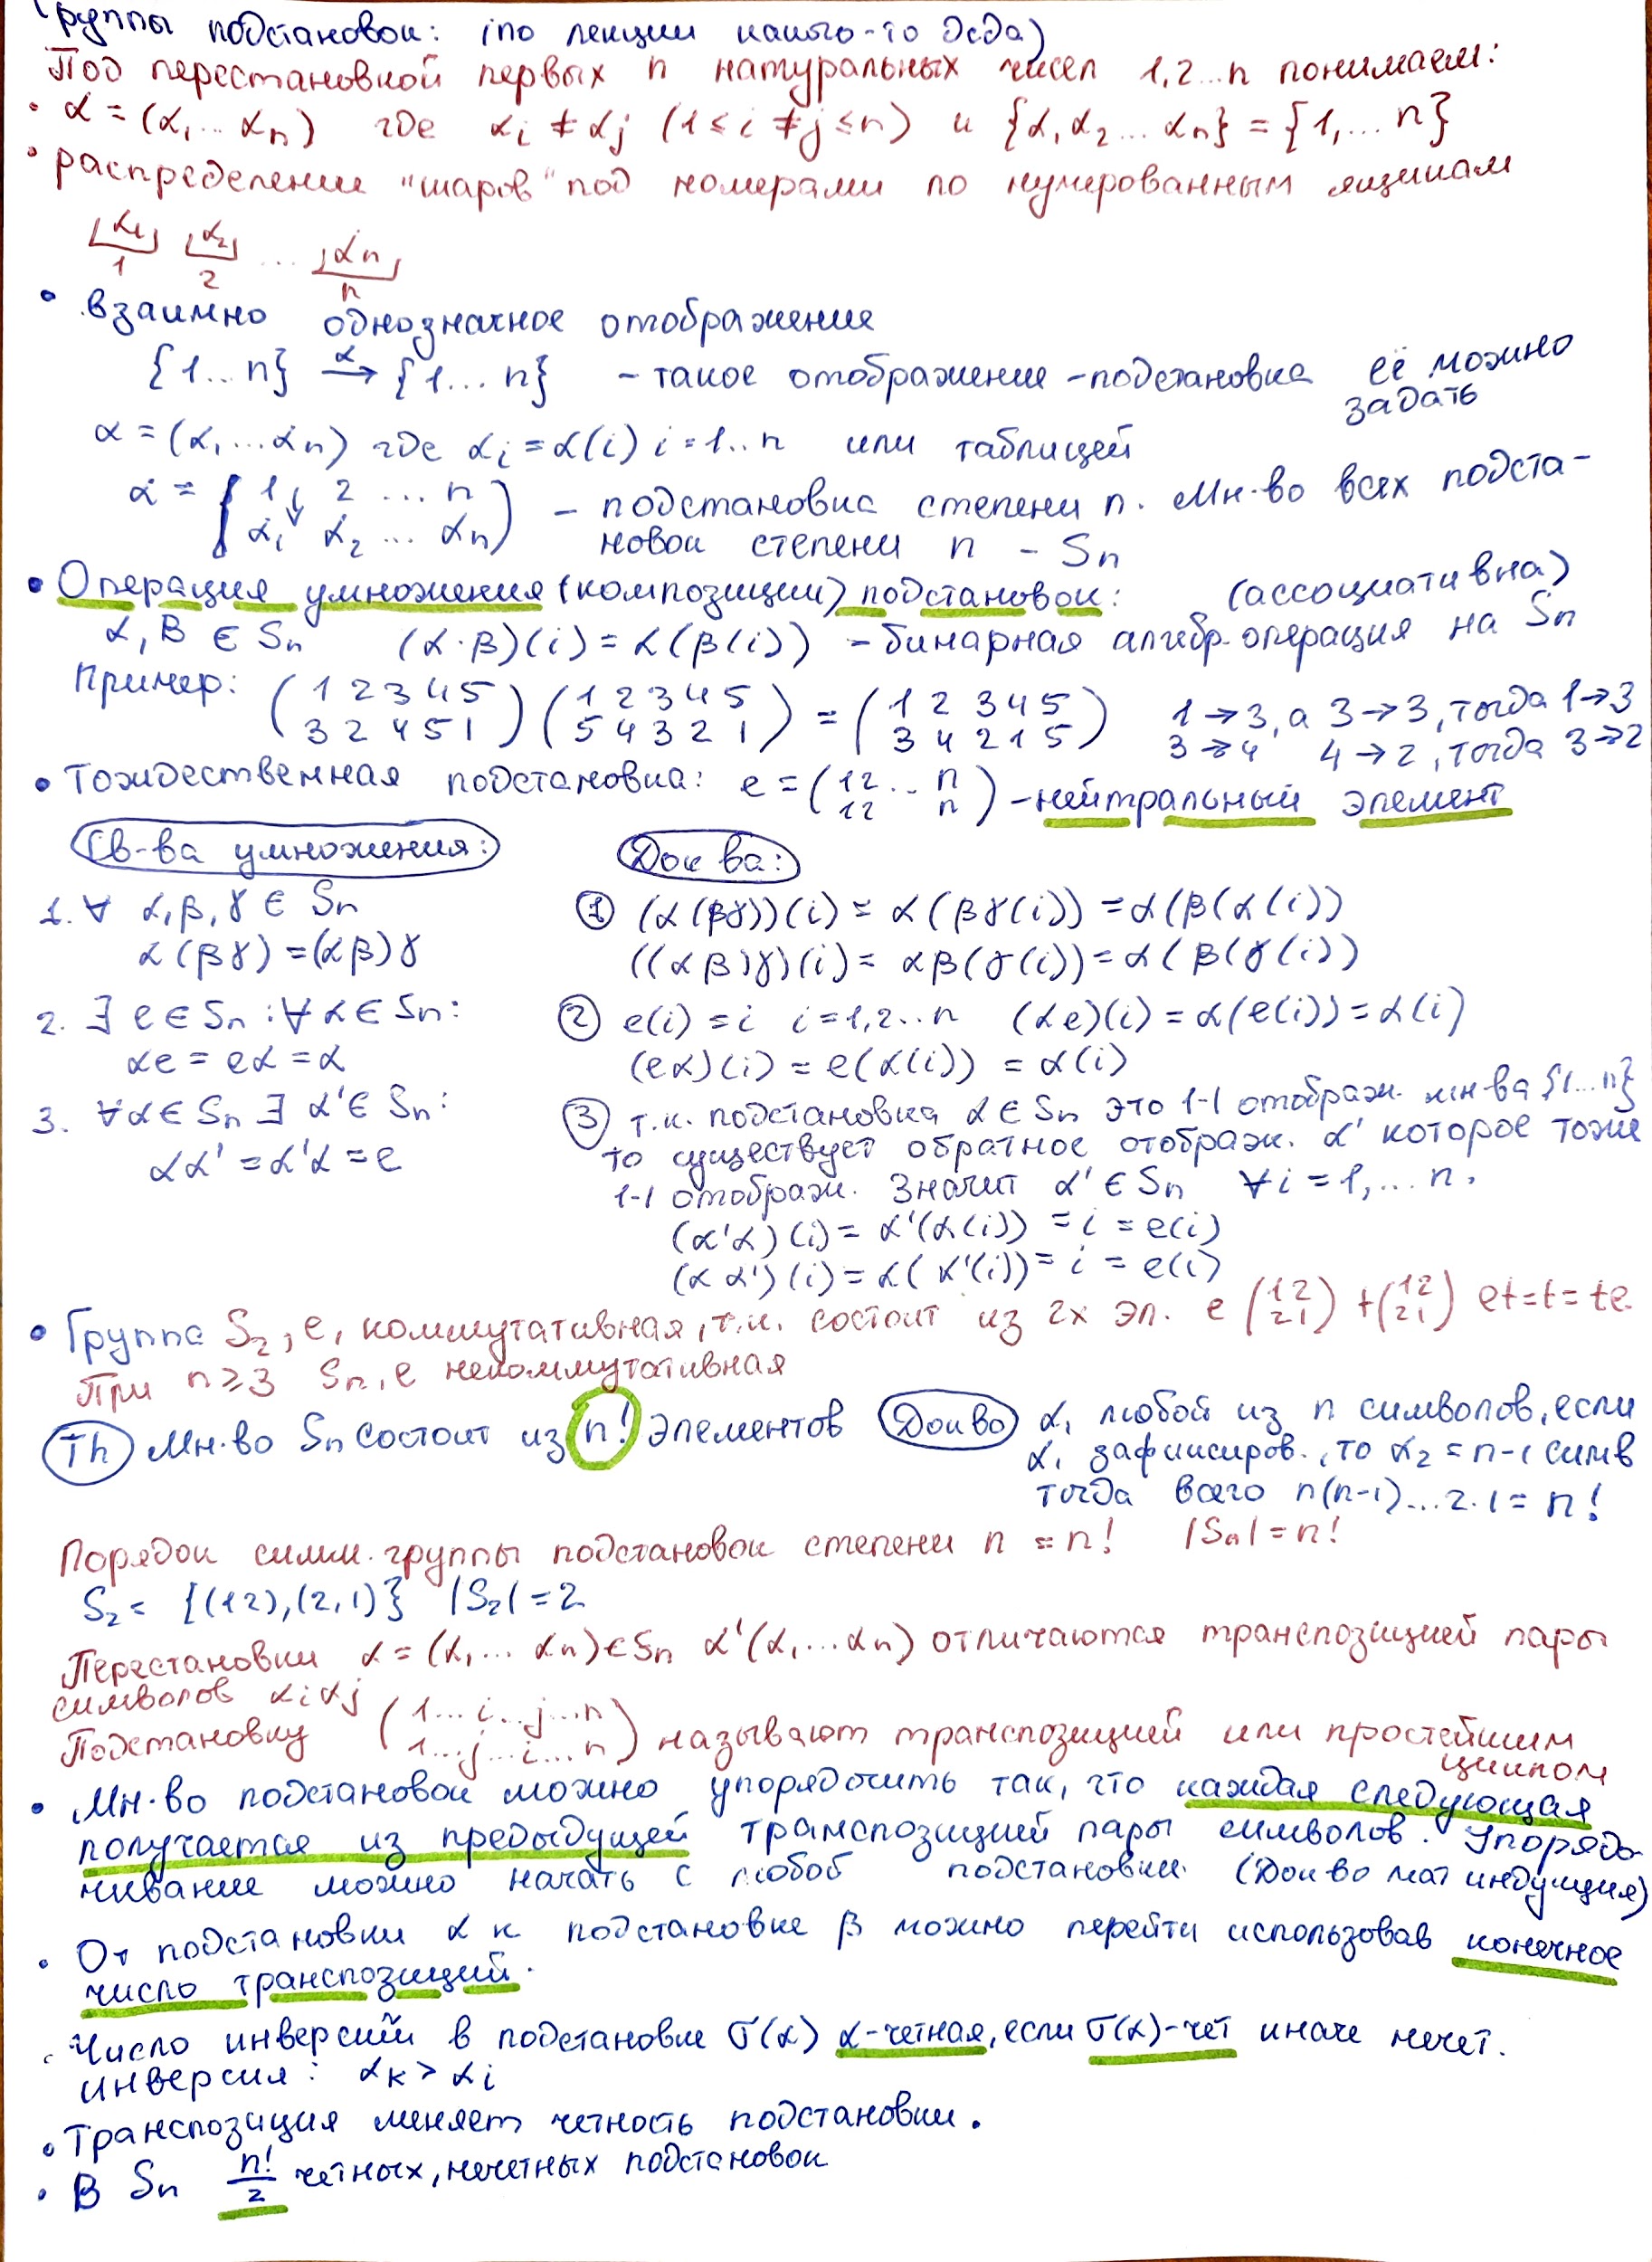 Группы подстановок: (по лекции какого-то Эсда)
Под перестановкой первых n натуральных чисел 1,2...n понимаем:
• α = (α₁ ... αₙ) где αᵢ ≠ αⱼ (1 ≤ i ≠ j ≤ n) и {α₁ α₂ ... αₙ} = {1, ... n}
• распределение "шаров" под номерами по нумерованным ящикам
α₁ α₂ ... αₙ
1 2 n
• взаимно однозначное отображение
{1...n} α→ {1...n} - такое отображение - подстановка её можно задать
α = (α₁ ... αₙ) где αᵢ = α(i) i = 1..n или таблицей
α = (1 2 ... n / α₁ α₂ ... αₙ) - подстановка степени n. Мн-во всех подста-
новок степени n - Sₙ
• Операция умножения (композиции) подстановок: (ассоциативна)
α, β ∈ Sₙ (α·β)(i) = α(β(i)) - бинарная алгебр. операция на Sₙ
Пример: (1 2 3 4 5 / 3 2 4 5 1) (1 2 3 4 5 / 5 4 3 2 1) = (1 2 3 4 5 / 3 4 2 1 5) 1→3, а 3→3, тогда 1→3
3→4 4→2, тогда 3→2
• Тождественная подстановка: e = (1 2 .. n / 1 2 n) - нейтральный элемент
Св-ва умножения: Док ва:
1. ∀ α, β, γ ∈ Sₙ ① (α(βγ))(i) = α(βγ(i)) = α(β(α(i))
α(βγ) = (αβ)γ ((αβ)γ)(i) = αβ(γ(i)) = α(β(γ(i))
2. ∃ e ∈ Sₙ : ∀ α ∈ Sₙ: ② e(i) = i i = 1,2..n (αe)(i) = α(e(i)) = α(i)
αe = eα = α (eα)(i) = e(α(i)) = α(i)
3. ∀α ∈ Sₙ ∃ α' ∈ Sₙ: ③ т.к. подстановка α ∈ Sₙ это 1-1 отображ. мн-ва {1...n}
αα' = α'α = e то существует обратное отображ. α' которое тоже
1-1 отображ. Значит α' ∈ Sₙ ∀i = 1, ... n.
(α'α)(i) = α'(α(i)) = i = e(i)
(αα')(i) = α(α'(i)) = i = e(i)
• Группа S₂, e, коммутативная, т.к. состоит из 2х эл. e (1 2 / 2 1) t (1 2 / 2 1) et = t = te
При n ≥ 3 Sₙ, e некоммутативная
Th Мн-во Sₙ состоит из n! элементов Док во α₁ любой из n символов, если
α₁ зафиксиров., то α₂ = n-1 симв
тогда всего n(n-1)...2·1 = n!
Порядок симм. группы подстановок степени n = n! |Sₙ| = n!
S₂ = {(12), (2,1)} |S₂| = 2
Перестановки α = (α₁ ... αₙ) ∈ Sₙ α'(α₁ ... αₙ) отличаются транспозицией пары
символов αᵢ αⱼ
Подстановку (1...i...j...n / 1...j...i...n) называют транспозицией или простейшим
циклом
• Мн-во подстановок можно упорядочить так, что каждая следующая
получается из предыдущей транспозицией пары символов. Упорядо-
чивание можно начать с любой подстановки. (Док во мат индукция)
• От подстановки α к подстановке β можно перейти использовав конечное
число транспозиций.
• Число инверсий в подстановке σ(α) α-четная, если σ(α)-чет иначе нечет.
инверсия: αₖ > αᵢ
• Транспозиция меняет четность подстановки.
• В Sₙ n!/2 четных, нечетных подстановок